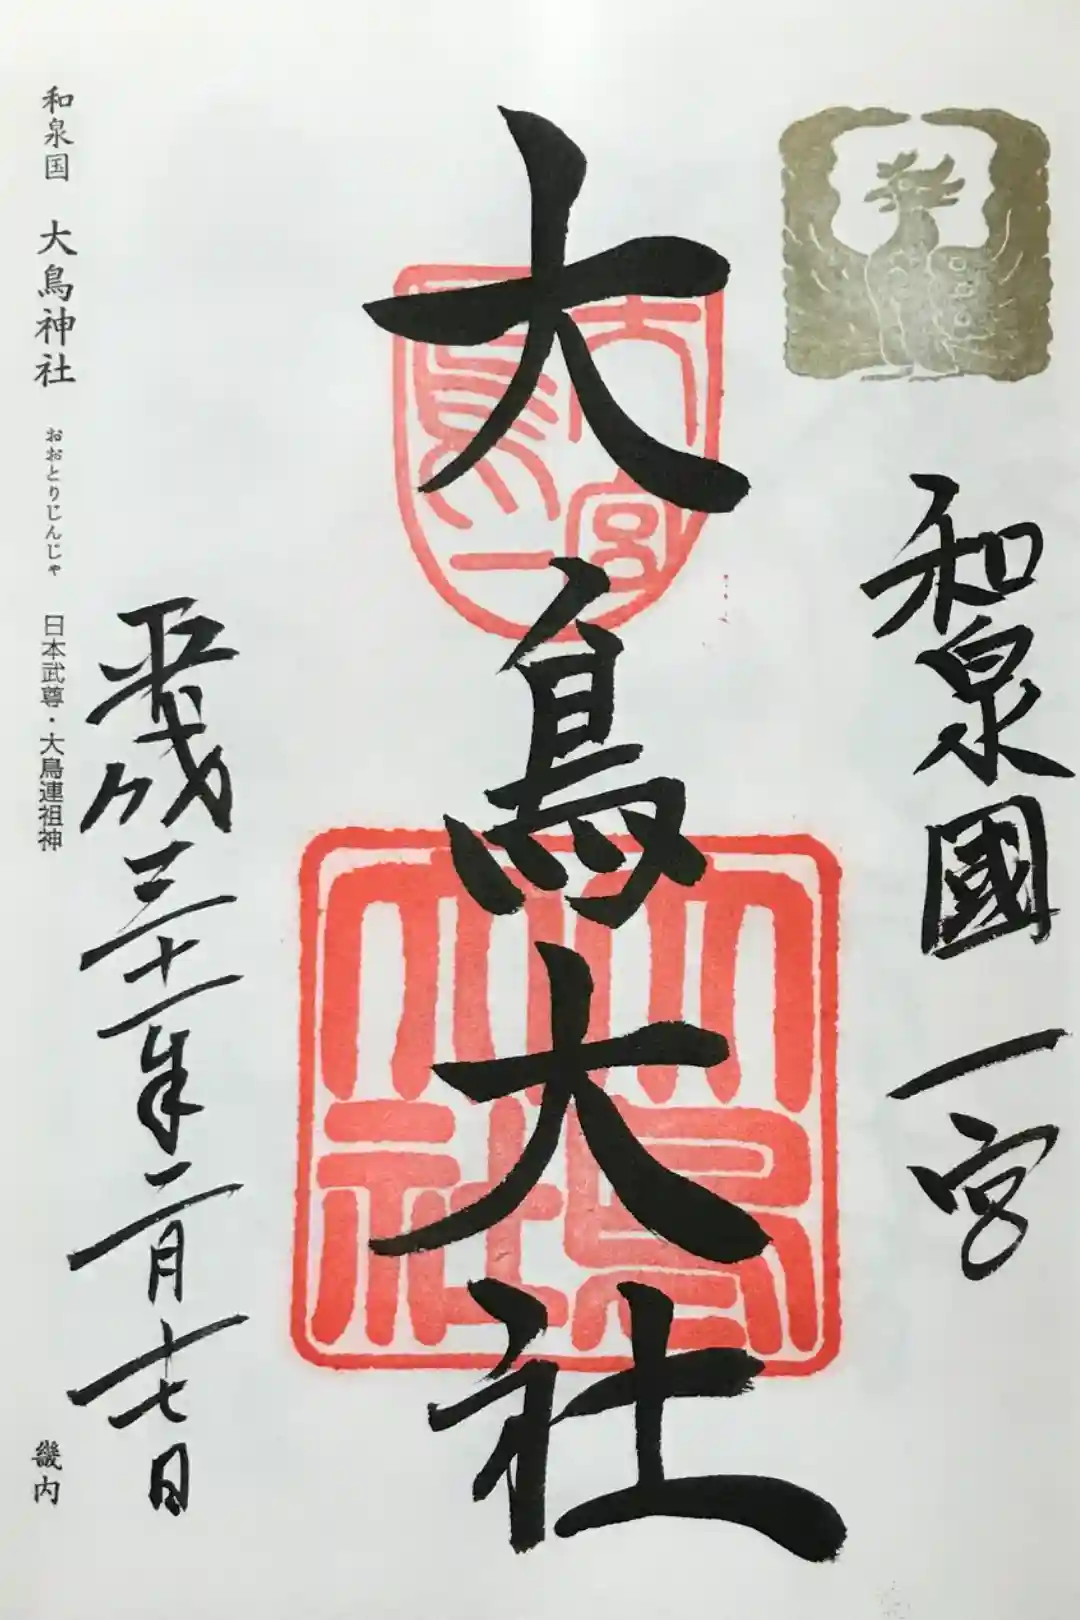 和泉國 一宮
大鳥大社
大鳥一宮
大鳥大社
平成三十一年二月十七日
和泉国 大鳥神社 おおとりじんじゃ 日本武尊・大鳥連祖神 畿内